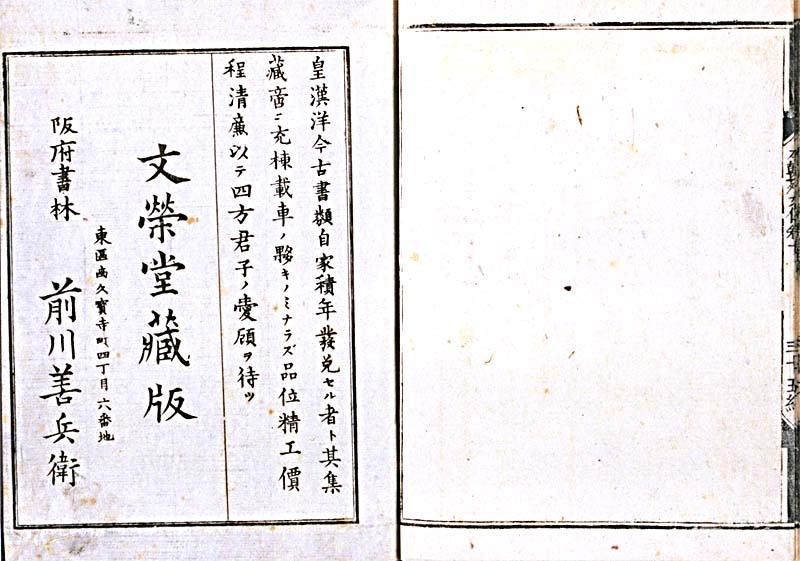 皇漢洋今古書類自家積年發兌セル者ト其集
藏啻ニ充棟載車ノ夥キノミナラズ品位精工價
程清廉以テ四方君子ノ愛顧ヲ待ツ
文榮堂藏版
東區南久寶寺町四丁目六番地
阪府書林 前川善兵衛